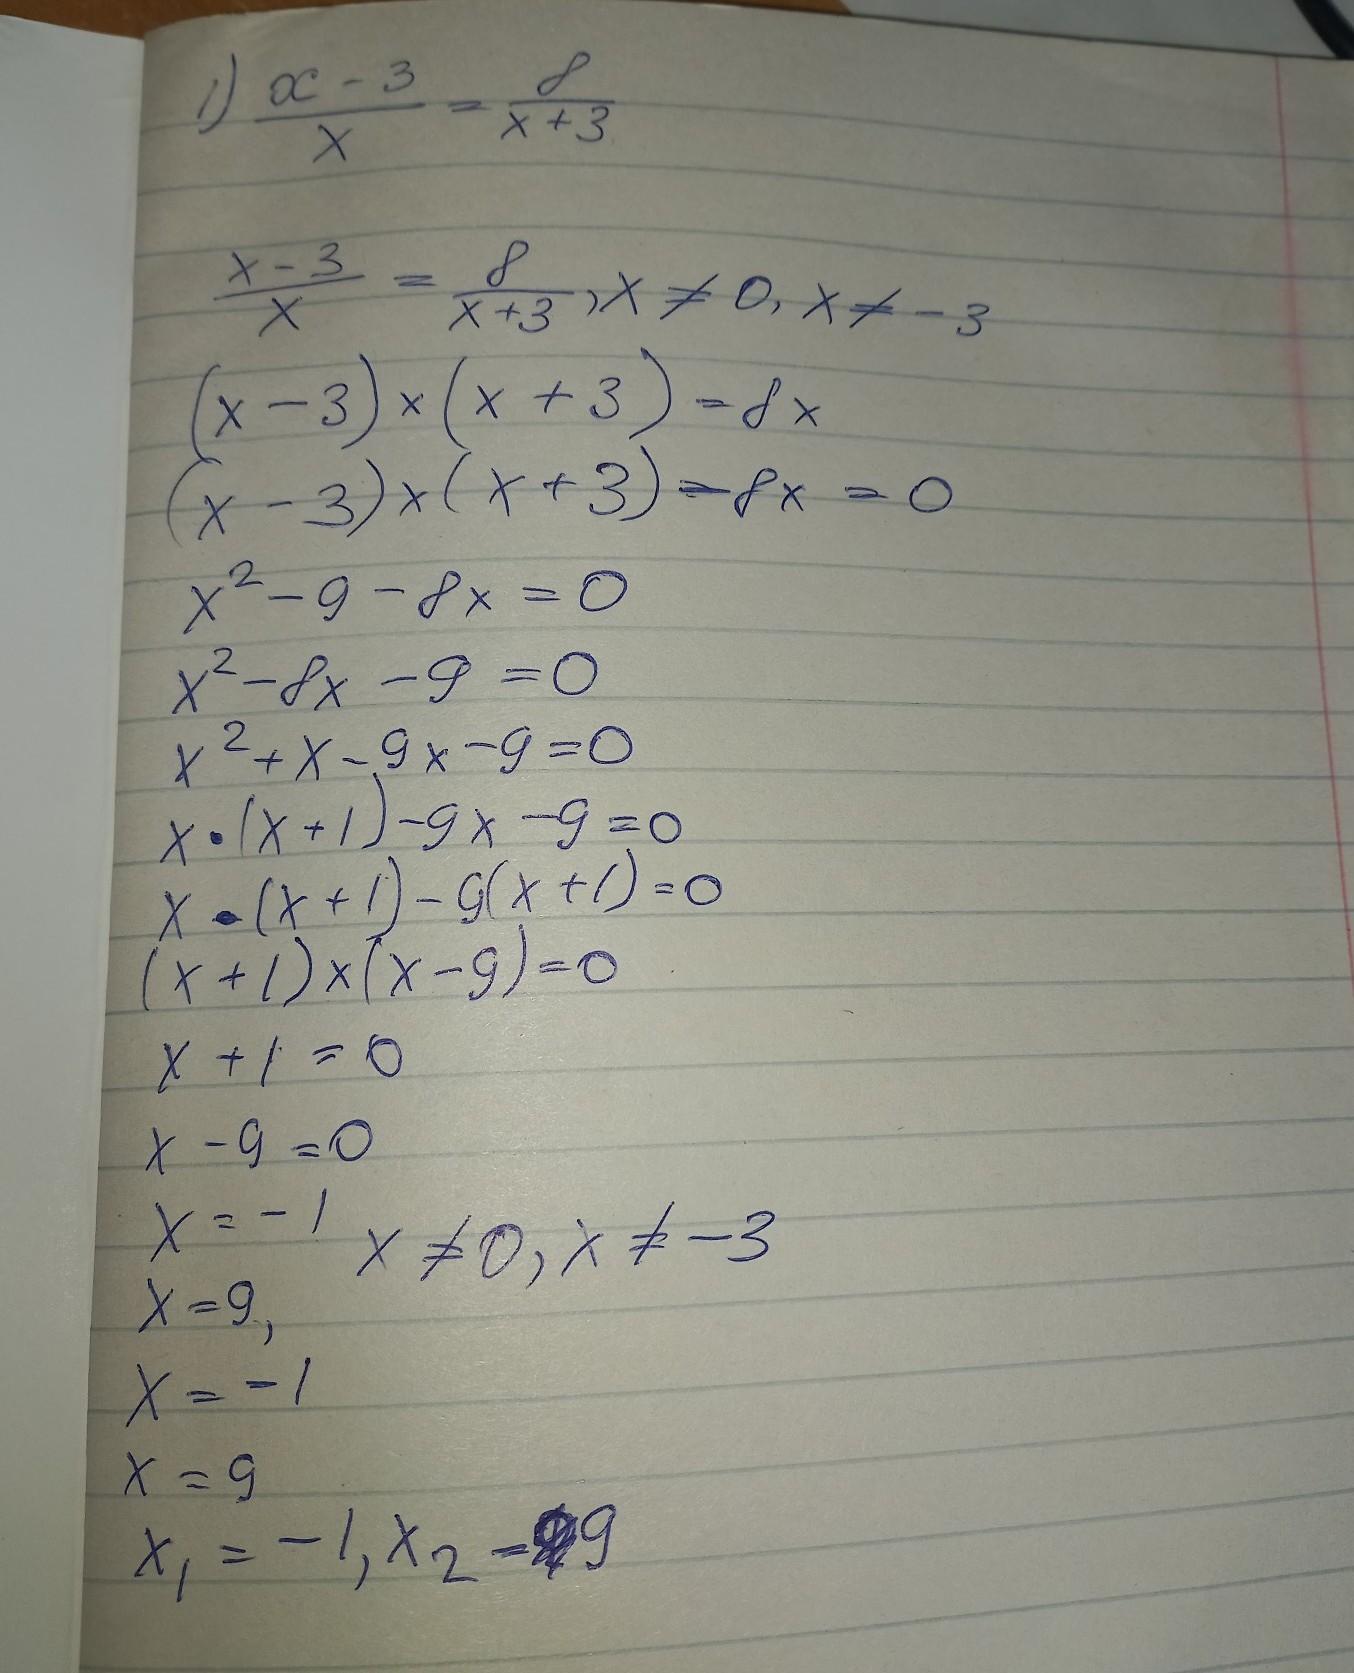 1) x-3/x = 8/x+3
x-3/x = 8/x+3, x ≠ 0, x ≠ -3
(x-3)×(x+3)=8x
(x-3)×(x+3)-8x=0
x²-9-8x=0
x²-8x-9=0
x²+x-9x-9=0
x·(x+1)-9x-9=0
x·(x+1)-9(x+1)=0
(x+1)×(x-9)=0
x+1=0
x-9=0
x=-1 x≠0, x≠-3
x=9,
x=-1
x=9
x₁=-1, x₂=9